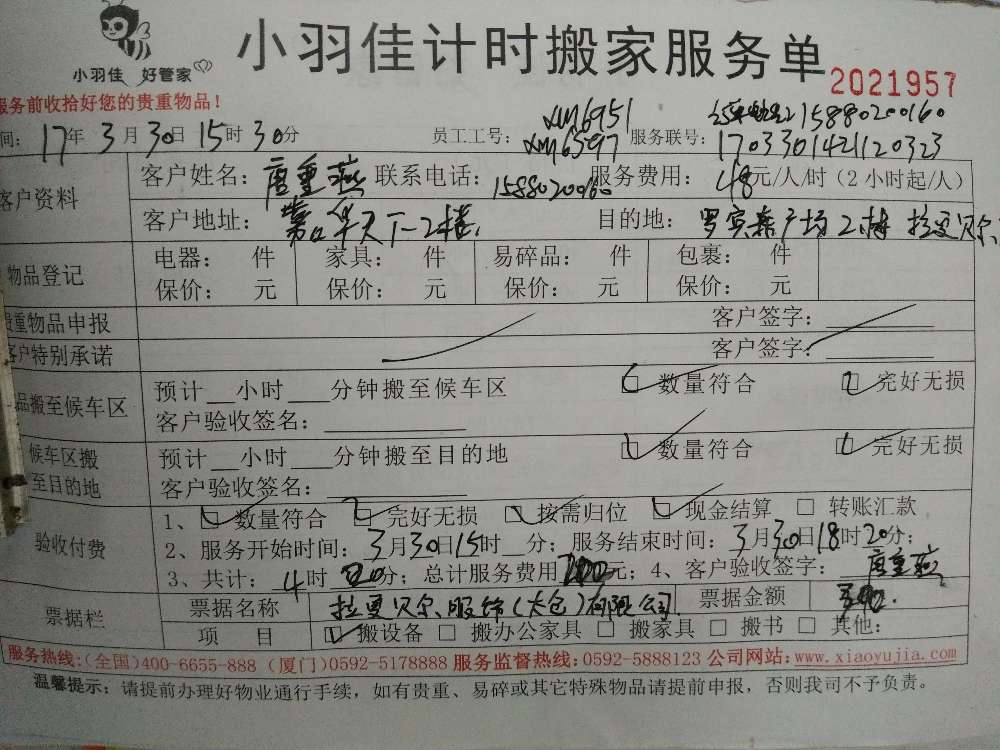 小羽佳 好管家
小羽佳计时搬家服务单
2021957
服务前收拾好您的贵重物品！
XM6951 15880200160
间：17年3月30日15时30分 员工工号：XM6597 服务联号：1703301421120323
客户资料 客户姓名：唐重燕 联系电话：15880200160 服务费用：48元/人/时（2小时起/人）
客户地址：华天下-2楼 目的地：罗宾森广场2栋 拉夏贝尔
物品登记 电器： 件 家具： 件 易碎品： 件 包裹： 件
保价： 元 保价： 元 保价： 元 保价： 元
贵重物品申报 客户签字：
客户特别承诺 客户签字：
品搬至候车区 预计__小时___分钟搬至候车区 数量符合 完好无损
客户验收签名：
候车区搬至目的地 预计__小时___分钟搬至目的地 数量符合 完好无损
客户验收签名：
验收付费 1、数量符合 完好无损 按需归位 现金结算 转账汇款
2、服务开始时间：3月30日15时__分；服务结束时间：3月30日18时20分；
3、共计：4时分；总计服务费用元；4、客户验收签字：唐重燕
票据栏 票据名称 拉夏贝尔服饰（太仓）有限公司 票据金额
项 目 搬设备 搬办公家具 搬家具 搬书 其他：
服务热线：(全国)400-6655-888 (厦门)0592-5178888 服务监督热线：0592-5888123 公司网站：www.xiaoyujia.com
温馨提示：请提前办理好物业通行手续，如有贵重、易碎或其它特殊物品请提前申报，否则我司不予负责。